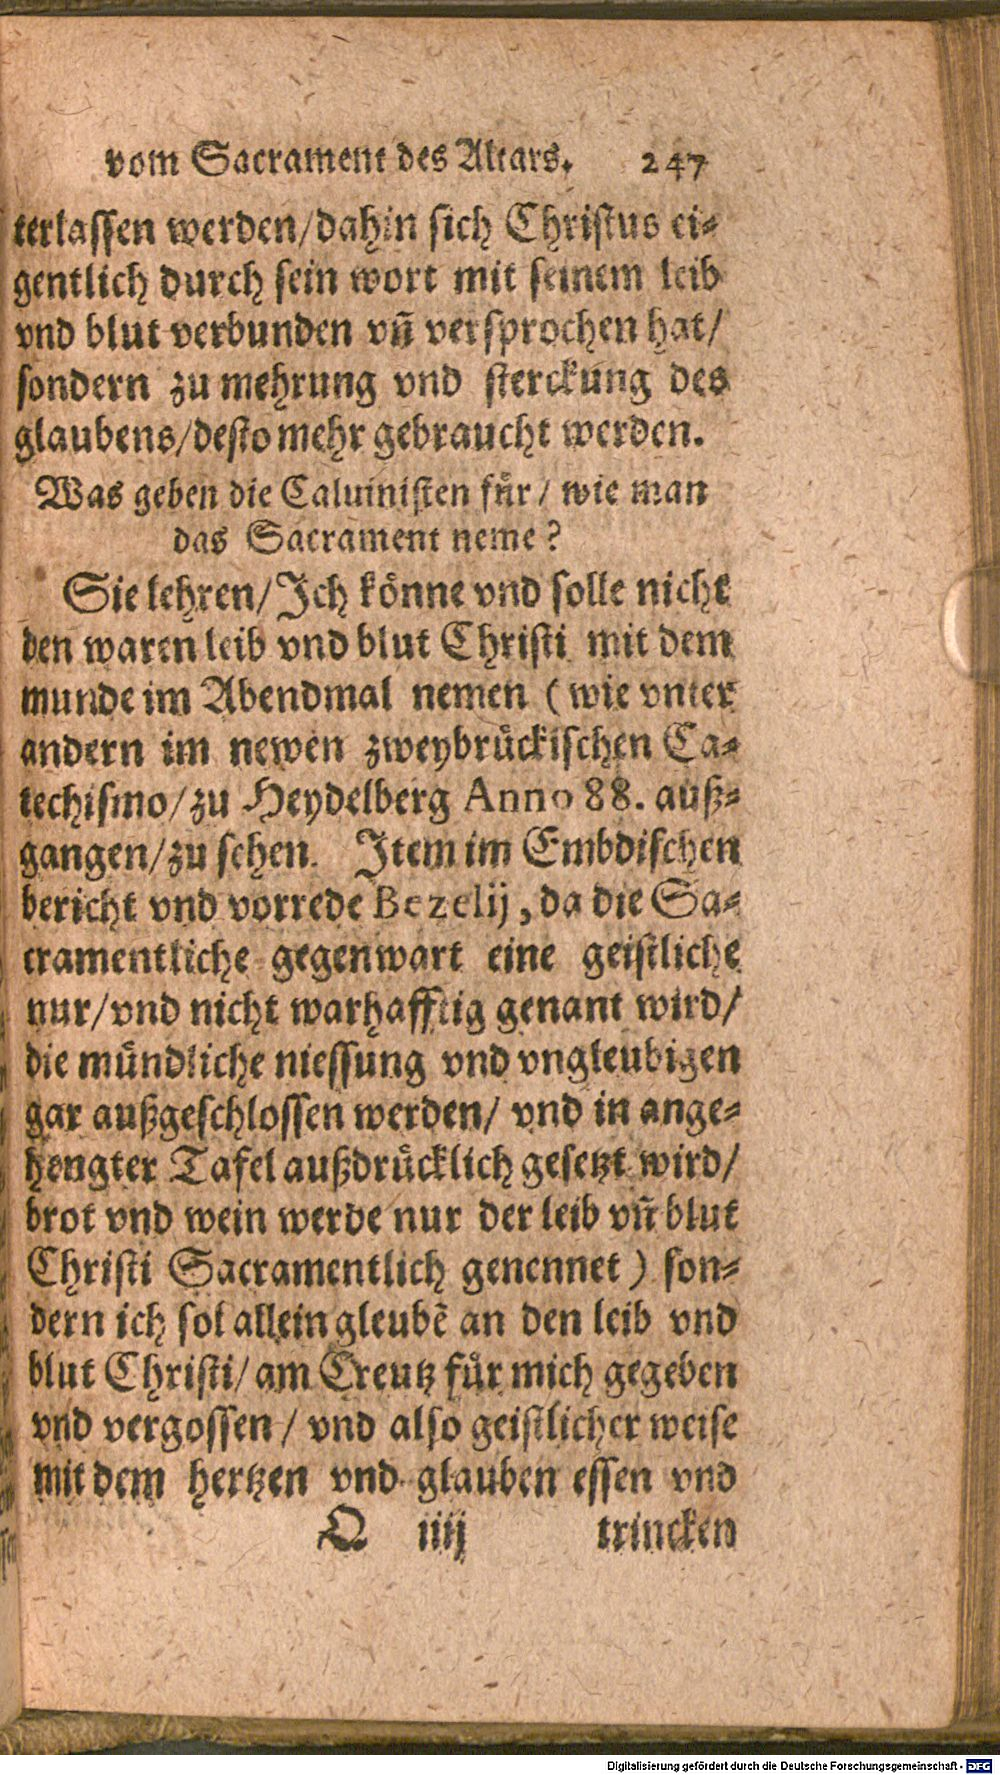 vom Sacrament des Altars. 247
terlassen werden/dahin sich Christus ei-
gentlich durch sein wort mit seinem leib
vnd blut verbunden vñ versprochen hat/
sondern zu mehrung vnd sterckung des
glaubens/desto mehr gebraucht werden.
Was geben die Caluinisten für/ wie man
das Sacrament neme?
Sie lehren/Ich könne vnd solle nicht
den waren leib vnd blut Christi mit dem
munde im Abendmal nemen (wie vnter
andern im newen zweybrückischen Ca-
techismo/zu Heydelberg Anno 88. auß-
gangen/zu sehen. Item im Embdischen
bericht vnd vorrede Bezelij, da die Sa-
cramentliche gegenwart eine geistliche
nur/vnd nicht warhafftig genant wird/
die mündliche niessung vnd vngleubigen
gar außgeschlossen werden/ vnd in ange-
hengter Tafel außdrücklich gesetzt wird/
brot vnd wein werde nur der leib vñ blut
Christi Sacramentlich genennet) son-
dern ich sol allein gleubẽ an den leib vnd
blut Christi/am Creutz für mich gegeben
vnd vergossen/ vnd also geistlicher weise
mit dem hertzen vnd glauben essen vnd
Q iiij trincken
Digitalisierung gefördert durch die Deutsche Forschungsgemeinschaft - DFG